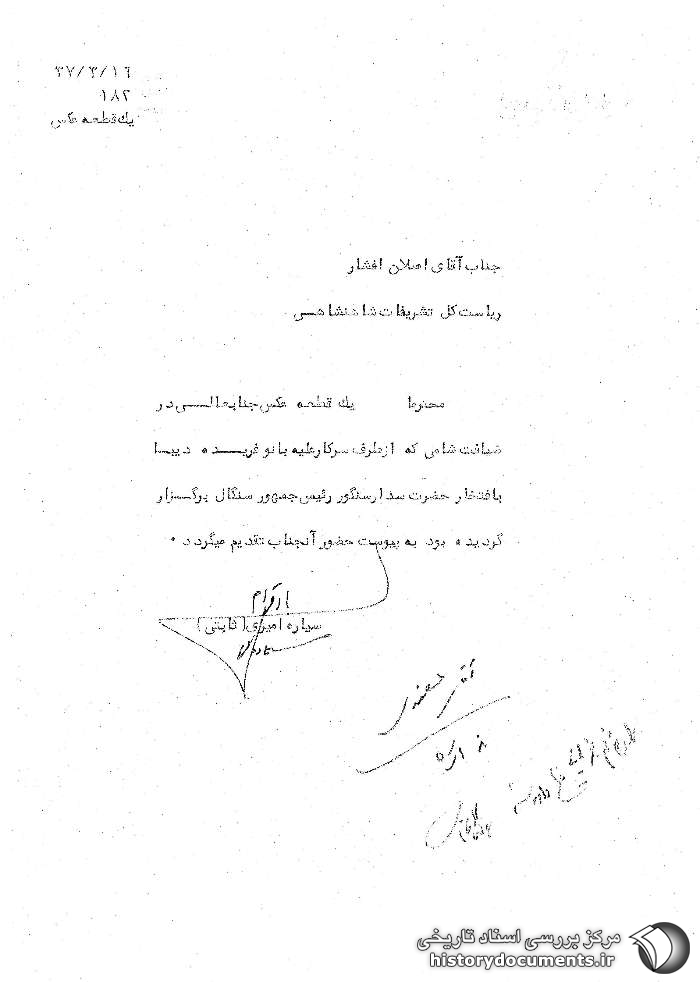 ۳۷/۳/۱۶
۱۸۲
یك قطعه عکس
جناب آقای اصلان افشار
ریاست کل تشریفات شاهنشاهی
محترما یك قطعه عکس جنابعالی در
ضیافت شامی که ازطرف سرکارعلیه بانو فریده دیبا
بافتخار حضرت سدارسنگور رئیس جمهور سنگال برگزار
گردیده بود به پیوست حضور آنجناب تقدیم میگردد ۰
با احترام
سیاره امیری (ثابتی)
مرکز بررسی اسناد تاریخی
historydocuments.ir